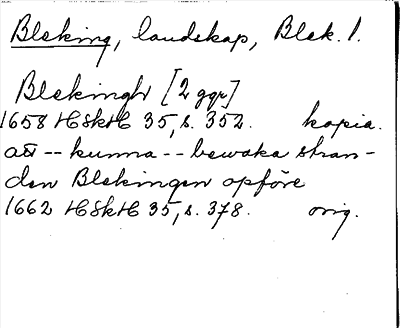 Bleking, landskap, Blek. l.
Blekingh [2 ggr]
1658 HSkH 35, s. 352. kopia.
att -- kunna -- bewaka stran-
den Blekingen opföre
1662 HSkH 35, s. 378. orig.